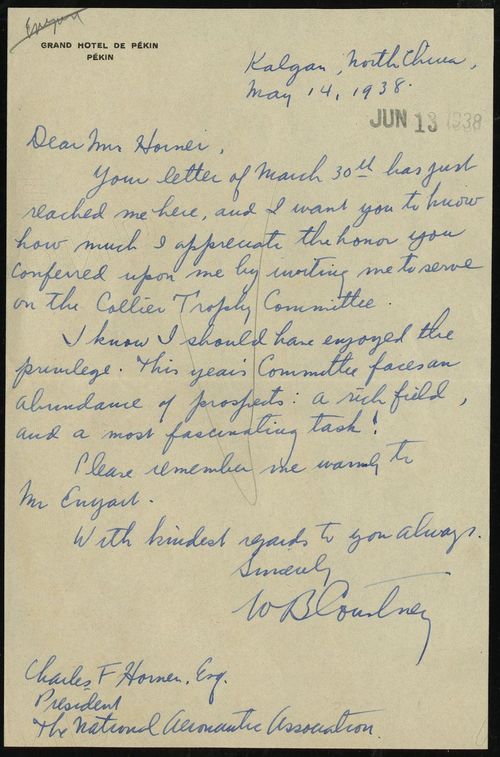 Enyart
GRAND HOTEL DE PÉKIN
PÉKIN
Kalgan, North China,
May 14, 1938.
JUN 13 1938
Dear Mr Horner,
Your letter of March 30th has just
reached me here, and I want you to know
how much I appreciate the honor you
conferred upon me by inviting me to serve
on the Collier Trophy Committee.
I know I should have enjoyed the
privilege. This year's Committee faces an
abundance of prospects: a rich field,
and a most fascinating task!
Please remember me warmly to
Mr Enyart.
With kindest regards to you always.
Sincerely
W B Courtney
Charles F Horner, Esq.
President
The National Aeronautic Association.